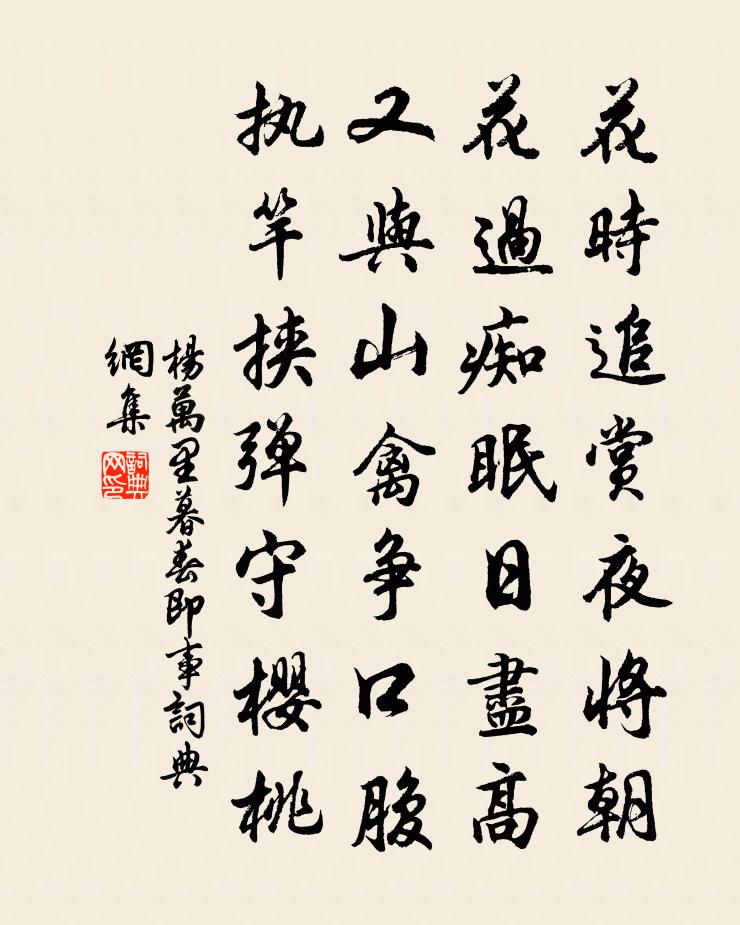 花時追賞夜將朝
花過痴眠日盡高
又與山禽争口腹
执竿挟弹守櫻桃
楊萬里暮春即事詞典
網集
詞典
网印